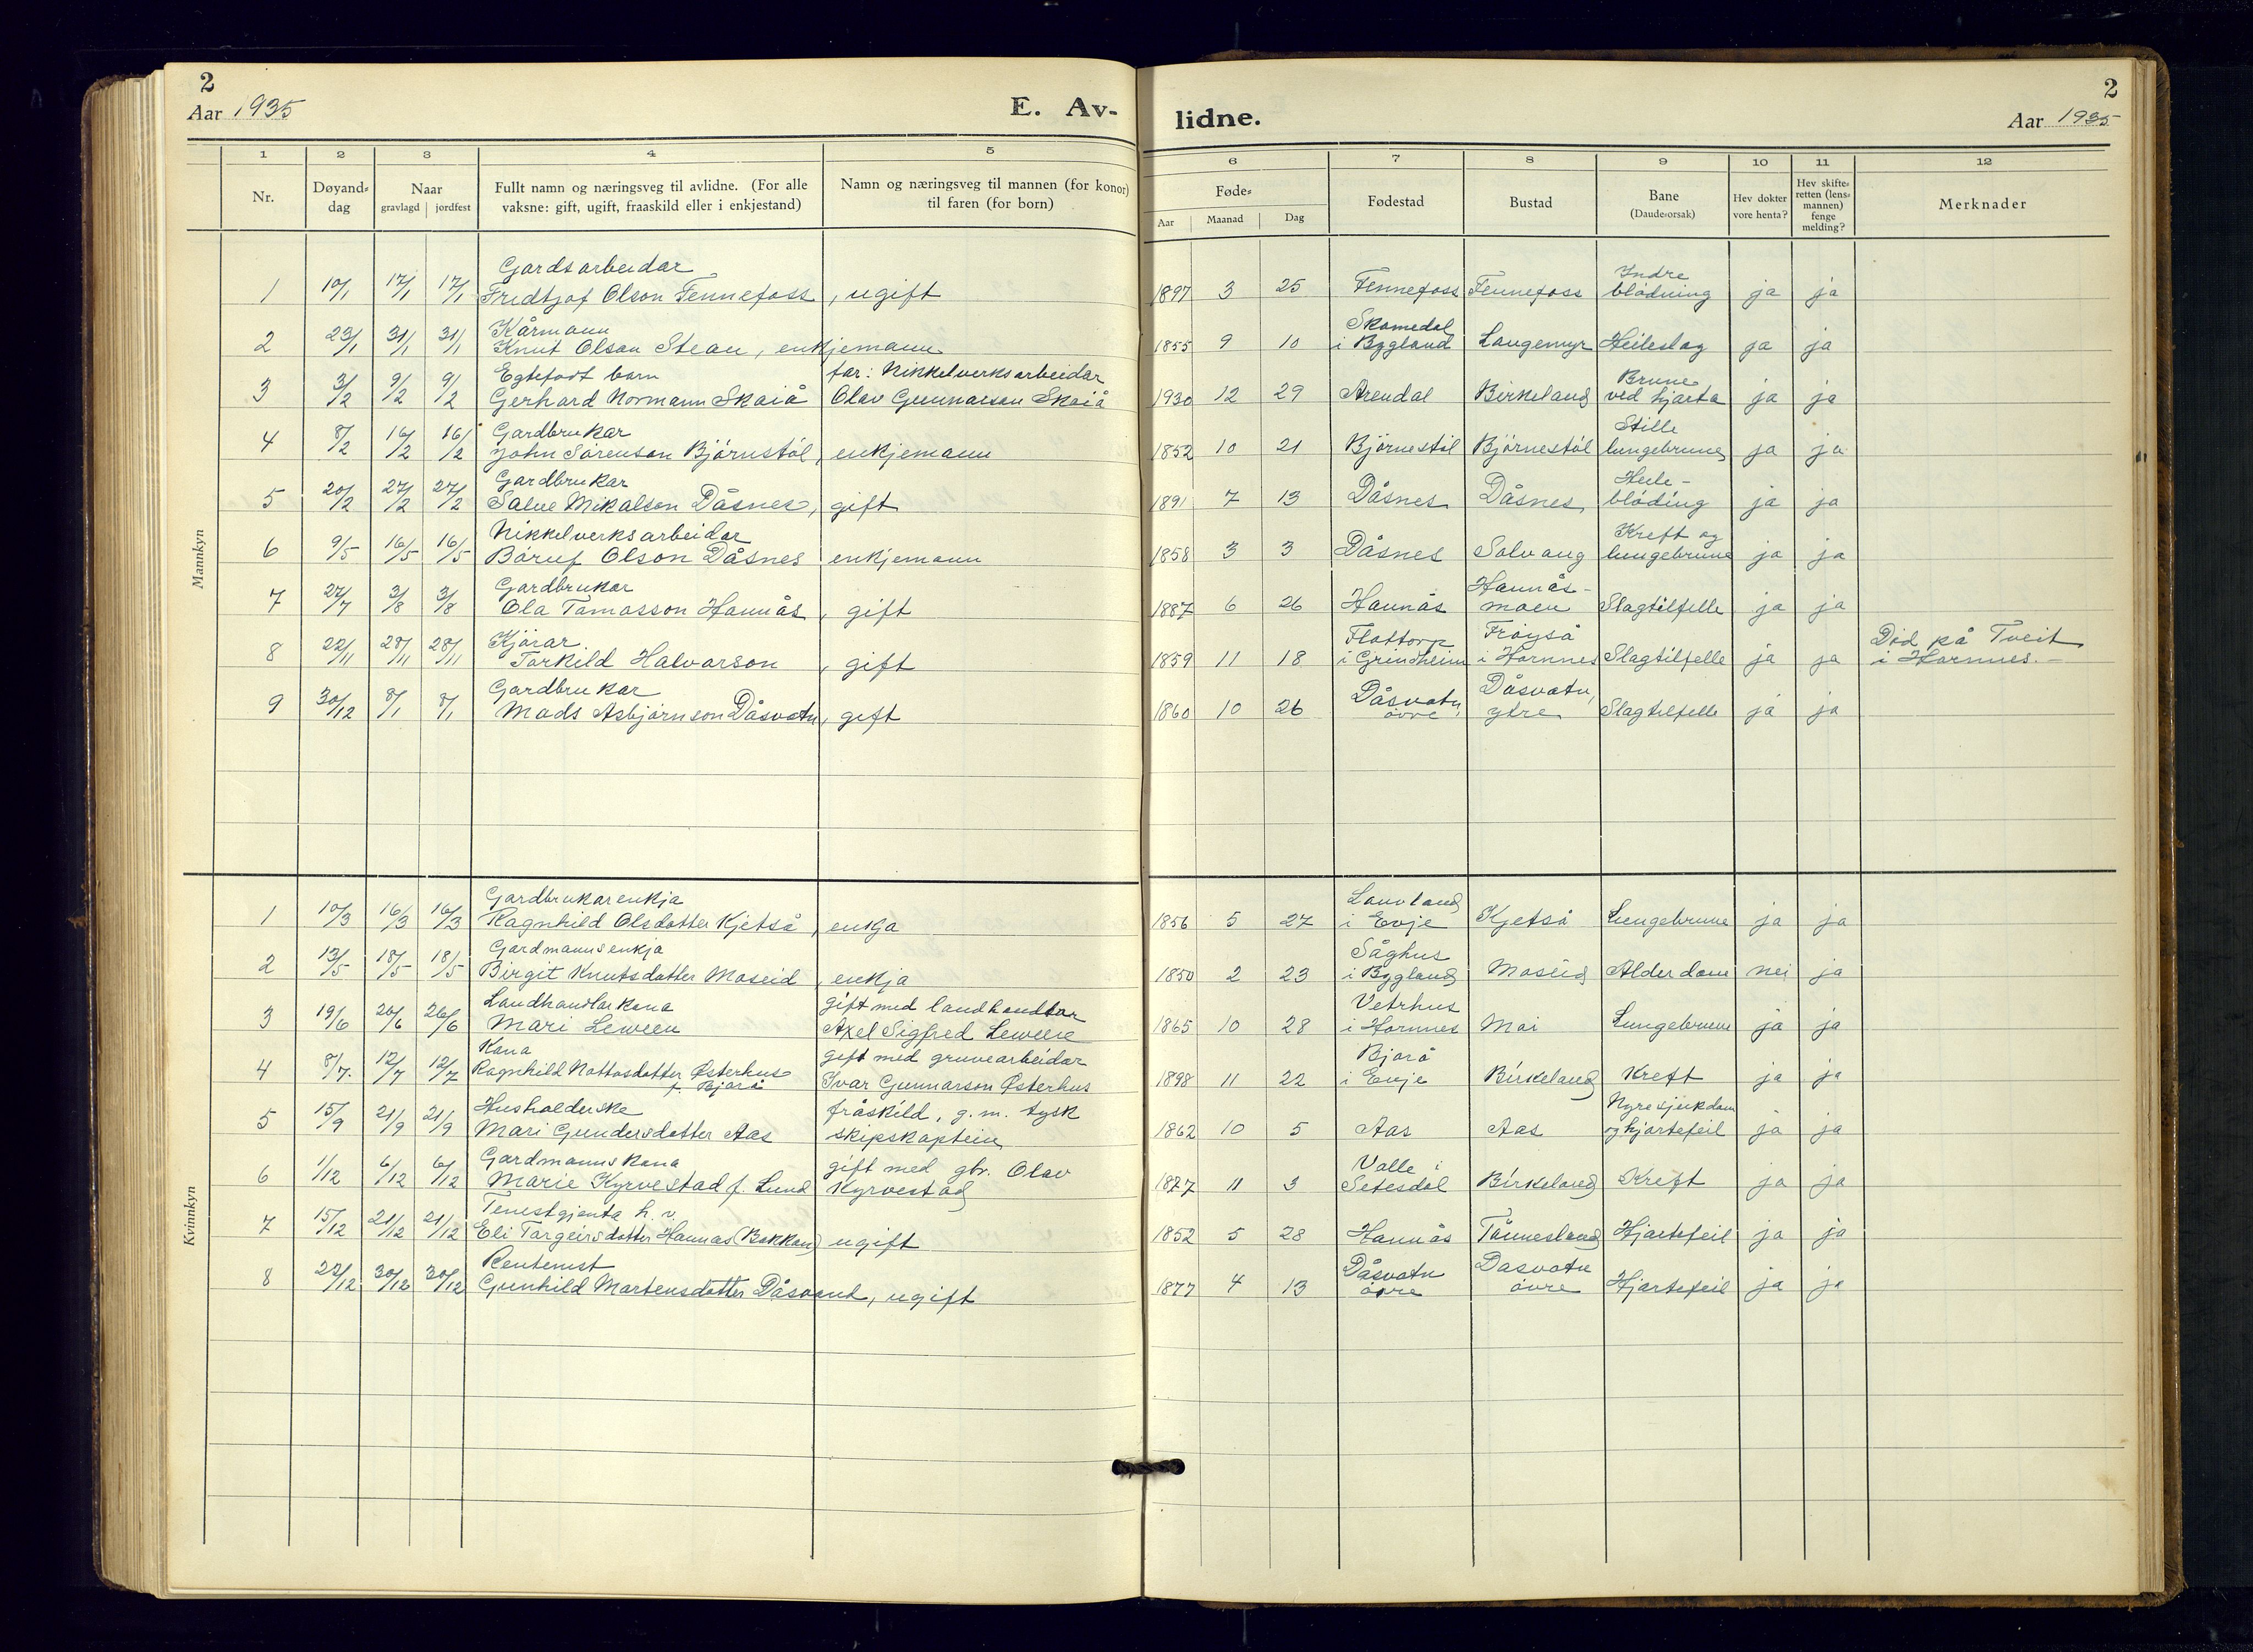 2
Aar 1935
E. Av-
lidne.
2
Aar 1935
1 2 3 4 5 6 7 8 9 10 11 12
Nr.
Døyand-
dag
Naar
gravlagd | jordfest
Fullt namn og næringsveg til avlidne. (For alle
vaksne: gift, ugift, fraaskild eller i enkjestand)
Namn og næringsveg til mannen (for konor)
til faren (for born)
Føde-
Aar Maanad Dag
Fødestad
Bustad
Bane
(Daude-orsak)
Hev dokter
vore henta?
Hev skifte-
retten (lens-
mannen)
fenge
melding?
Merknader
Mannkyn
Gardsarbeidar Indre
1 10/1 17/1 17/1 Fredtjof Olson Fennefoss, ugift 1897 3 25 Fennefoss Fennefoss blødning ja ja
Kårmann Skomedal
2 23/1 31/1 31/1 Knut Olson Stean, enkjemann 1855 9 10 i Bygland Langemyr Heileslag ja ja
Egtefødt barn far: Nikkelverksarbeidar Brune
3 3/2 9/2 9/2 Gerhard Normann Skaiå Olav Gunnarson Skaiå 1930 12 29 Arendal Birkeland ved hjarta ja ja
Gardbrukar Stille
4 8/2 16/2 16/2 John Sørenson Bjørnstøl, enkjemann 1852 10 21 Bjørnestøl Bjørnestøl lungebrune ja ja
Gardbrukar Heile-
5 20/2 27/2 27/2 Salve Mikalson Dåsnes, gift 1891 7 13 Dåsnes Dåsnes bløding ja ja
Nikkelverksarbeidar Kreft og
6 9/5 16/5 16/5 Båruf Olson Dåsnes enkjemann 1858 3 3 Dåsnes Solvang lungebrune ja ja
Gardbrukar Hannås-
7 27/7 3/8 3/8 Ola Tomasson Hannås, gift 1887 6 26 Hannås moen Slagtilfelle ja ja
Kjørar Flottorp Frøyså Død på Tveit
8 22/11 28/11 28/11 Torkild Halvorson, gift 1859 11 18 i Grindheim i Hornnes Slagtilfelle ja ja i Hornnes.-
Gardbrukar Dåsvatn, Dåsvatn,
9 30/12 8/1 8/1 Mads Asbjørnson Dåsvatn, gift 1860 10 26 øvre ytre Slagtilfelle ja ja
Kvinnkyn
Gardbrukarenkja Lauvland
1 10/3 16/3 16/3 Ragnhild Olsdotter Kjetså, enkja 1856 5 27 i Evje Kjetså Lungebrune ja ja
Gardmannsenkja Såghus
2 13/5 18/5 18/5 Birgit Knutsdotter Moseid, enkja 1850 2 23 i Bygland Moseid Alderdom nei ja
Landhandlarkona gift med landhandlar Vetrhus
3 19/6 26/6 26/6 Mari Leween Axel Sigfred Leween 1865 10 28 i Hornnes Moi Lungebrune ja ja
Kona gift med gruvearbeidar Bjorå
4 8/7. 12/7 12/7 Ragnhild Nottosdotter Østerhus Ivar Gunnarson Østerhus 1898 11 22 i Evje Birkeland Kreft ja ja
f. Bjorå
Husholderske fråskild, g.m. tysk Nyresjukdom
5 15/9 21/9 21/9 Mari Gundersdotter Aas skipskaptein 1862 10 5 Aas Aas og hjartefeil ja ja
Gardmannskona gift med gbr. Olav Valle i
6 1/12 6/12 6/12 Marie Kyrvestad f. Lund Kyrvestad 1877 11 3 Setesdal Birkeland Kreft ja ja
Tenestgjenta h.v.
7 15/12 21/12 21/12 Eli Torgeirsdotter Hannås (Bakkan) ugift 1852 5 28 Hannås Tånnesland Hjartefeil ja ja
Rentenist Dåsvatn Dåsvatn
8 22/12 30/12 30/12 Gunhild Martensdotter Dåsvand, ugift 1877 4 13 øvre øvre Hjartefeil ja ja